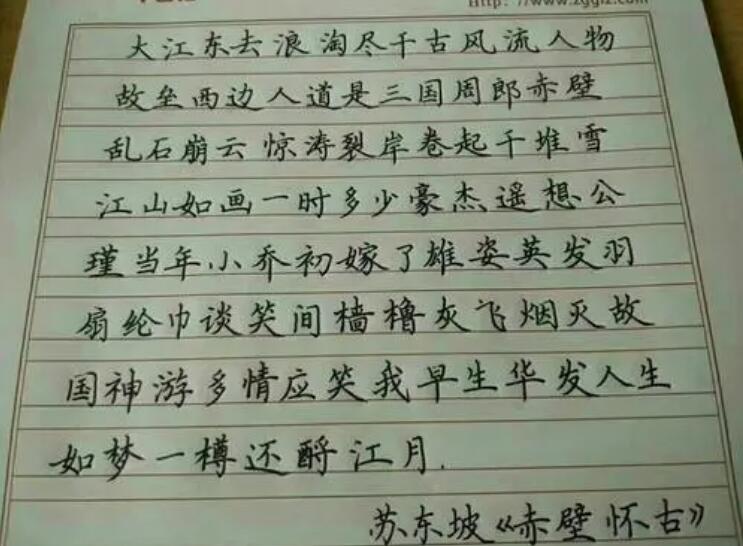 Http://www.zggfz.com
大江东去浪淘尽千古风流人物
故垒西边人道是三国周郎赤壁
乱石崩云惊涛裂岸卷起千堆雪
江山如画一时多少豪杰遥想公
瑾当年小乔初嫁了雄姿英发羽
扇纶巾谈笑间樯橹灰飞烟灭故
国神游多情应笑我早生华发人生
如梦一樽还酹江月.
苏东坡《赤壁怀古》